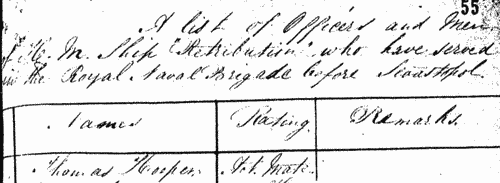 55
A list of Officers and Men
of H. M. Ship "Retribution" who have served
in the Royal Naval Brigade before Sevastopol.
Names Rating Remarks.
Thomas Hooper Act. Mate